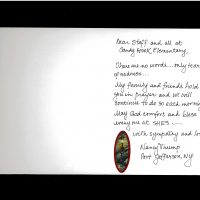 Dear Staff and all at
Sandy Hook Elementary,
There are no words... only tears
of sadness...
My family and friends hold
you in prayer and we will
continue to do so each morning
May God comfort and bless
everyone at SHES
with sympathy and love
Nancy Trump
Port Jefferson, NY